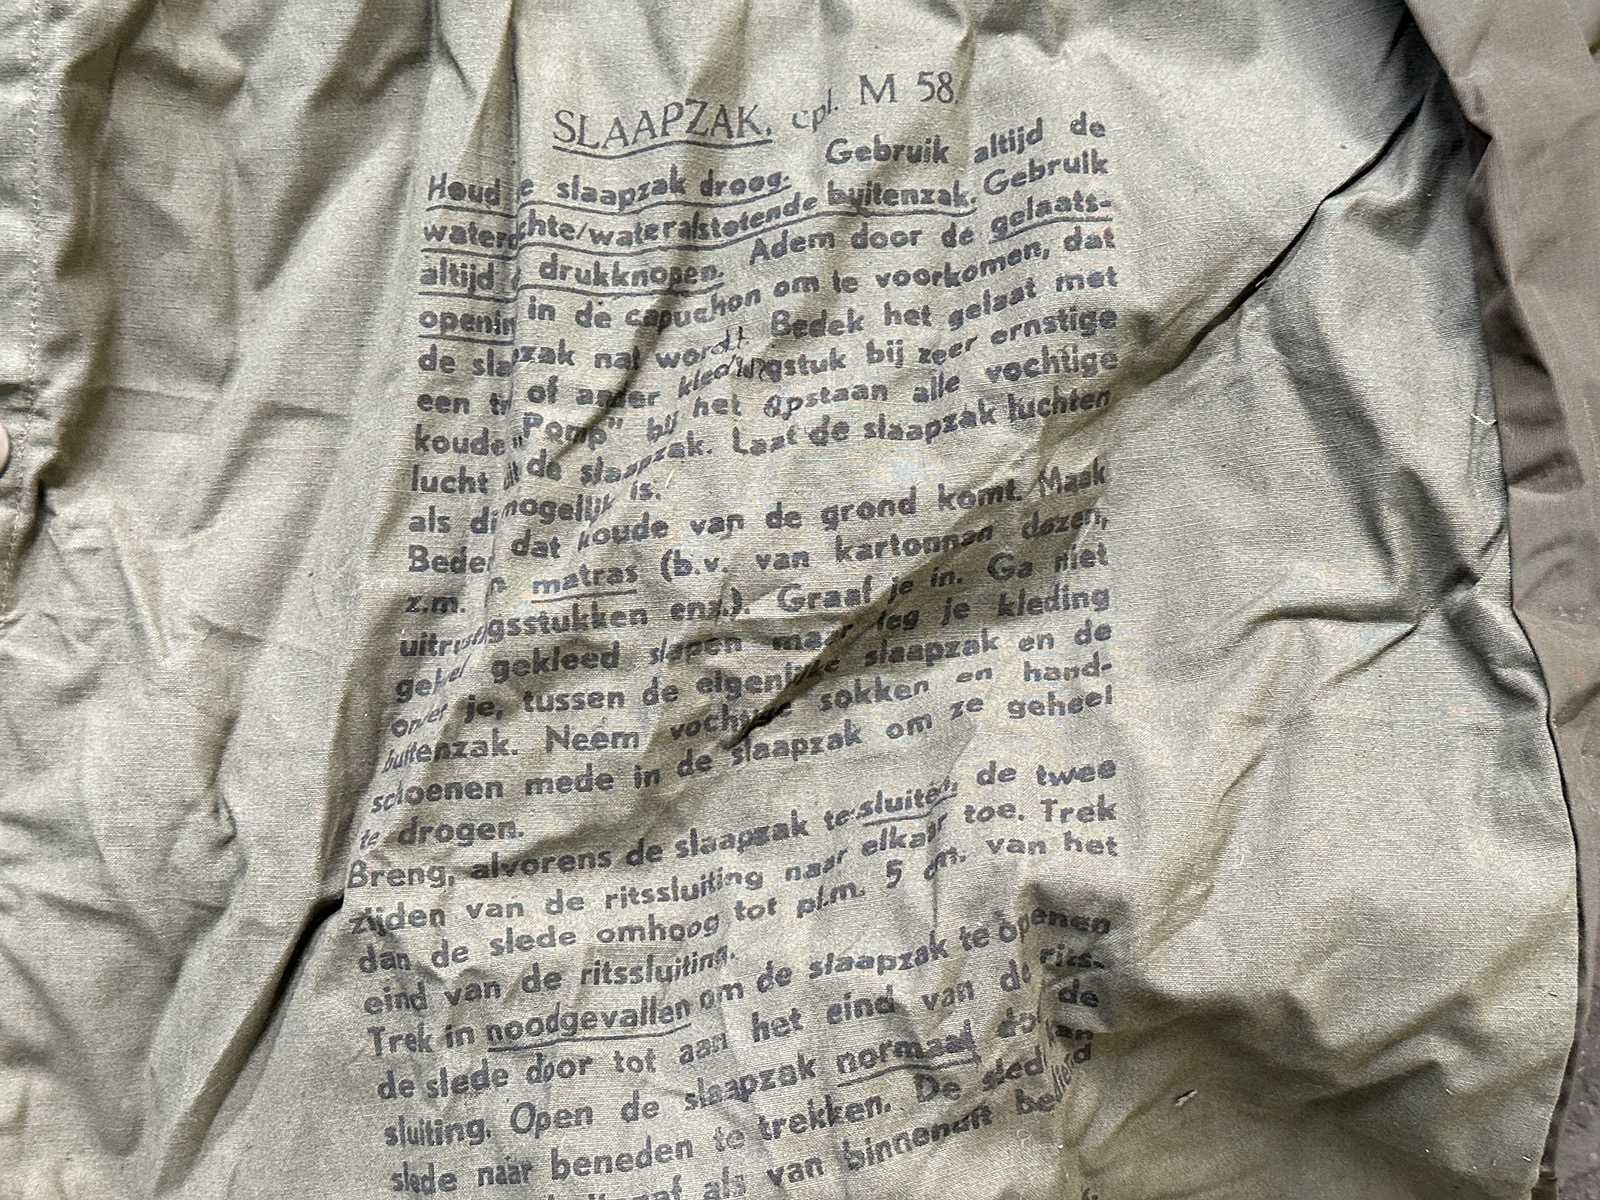 SLAAPZAK, cpl. M 58.
Houd de slaapzak droog. Gebruik altijd de
waterdichte/waterafstotende buitenzak. Gebruik
altijd de drukknopen. Adem door de gelaats-
opening in de capuchon om te voorkomen, dat
de slaapzak nat wordt. Bedek het gelaat met
een trui of ander kledingstuk bij zeer ernstige
koude. „Pomp" bij het opstaan alle vochtige
lucht uit de slaapzak. Laat de slaapzak luchten
als dit mogelijk is.
Bedenk dat koude van de grond komt. Maak
z.m. een matras (b.v. van kartonnen dozen,
uitrustingsstukken enz.). Graaf je in. Ga niet
geheel gekleed slapen maar leg je kleding
onder je, tussen de eigenlijke slaapzak en de
buitenzak. Neem vochtige sokken en hand-
schoenen mede in de slaapzak om ze geheel
te drogen.
Breng, alvorens de slaapzak te sluiten, de twee
zijden van de ritssluiting naar elkaar toe. Trek
dan de slede omhoog tot plm. 5 cm. van het
eind van de ritssluiting.
Trek in noodgevallen om de slaapzak te openen
de slede door tot aan het eind van de rits-
sluiting. Open de slaapzak normaal door de
slede naar beneden te trekken. De slede kan
als van binnenuit bediend